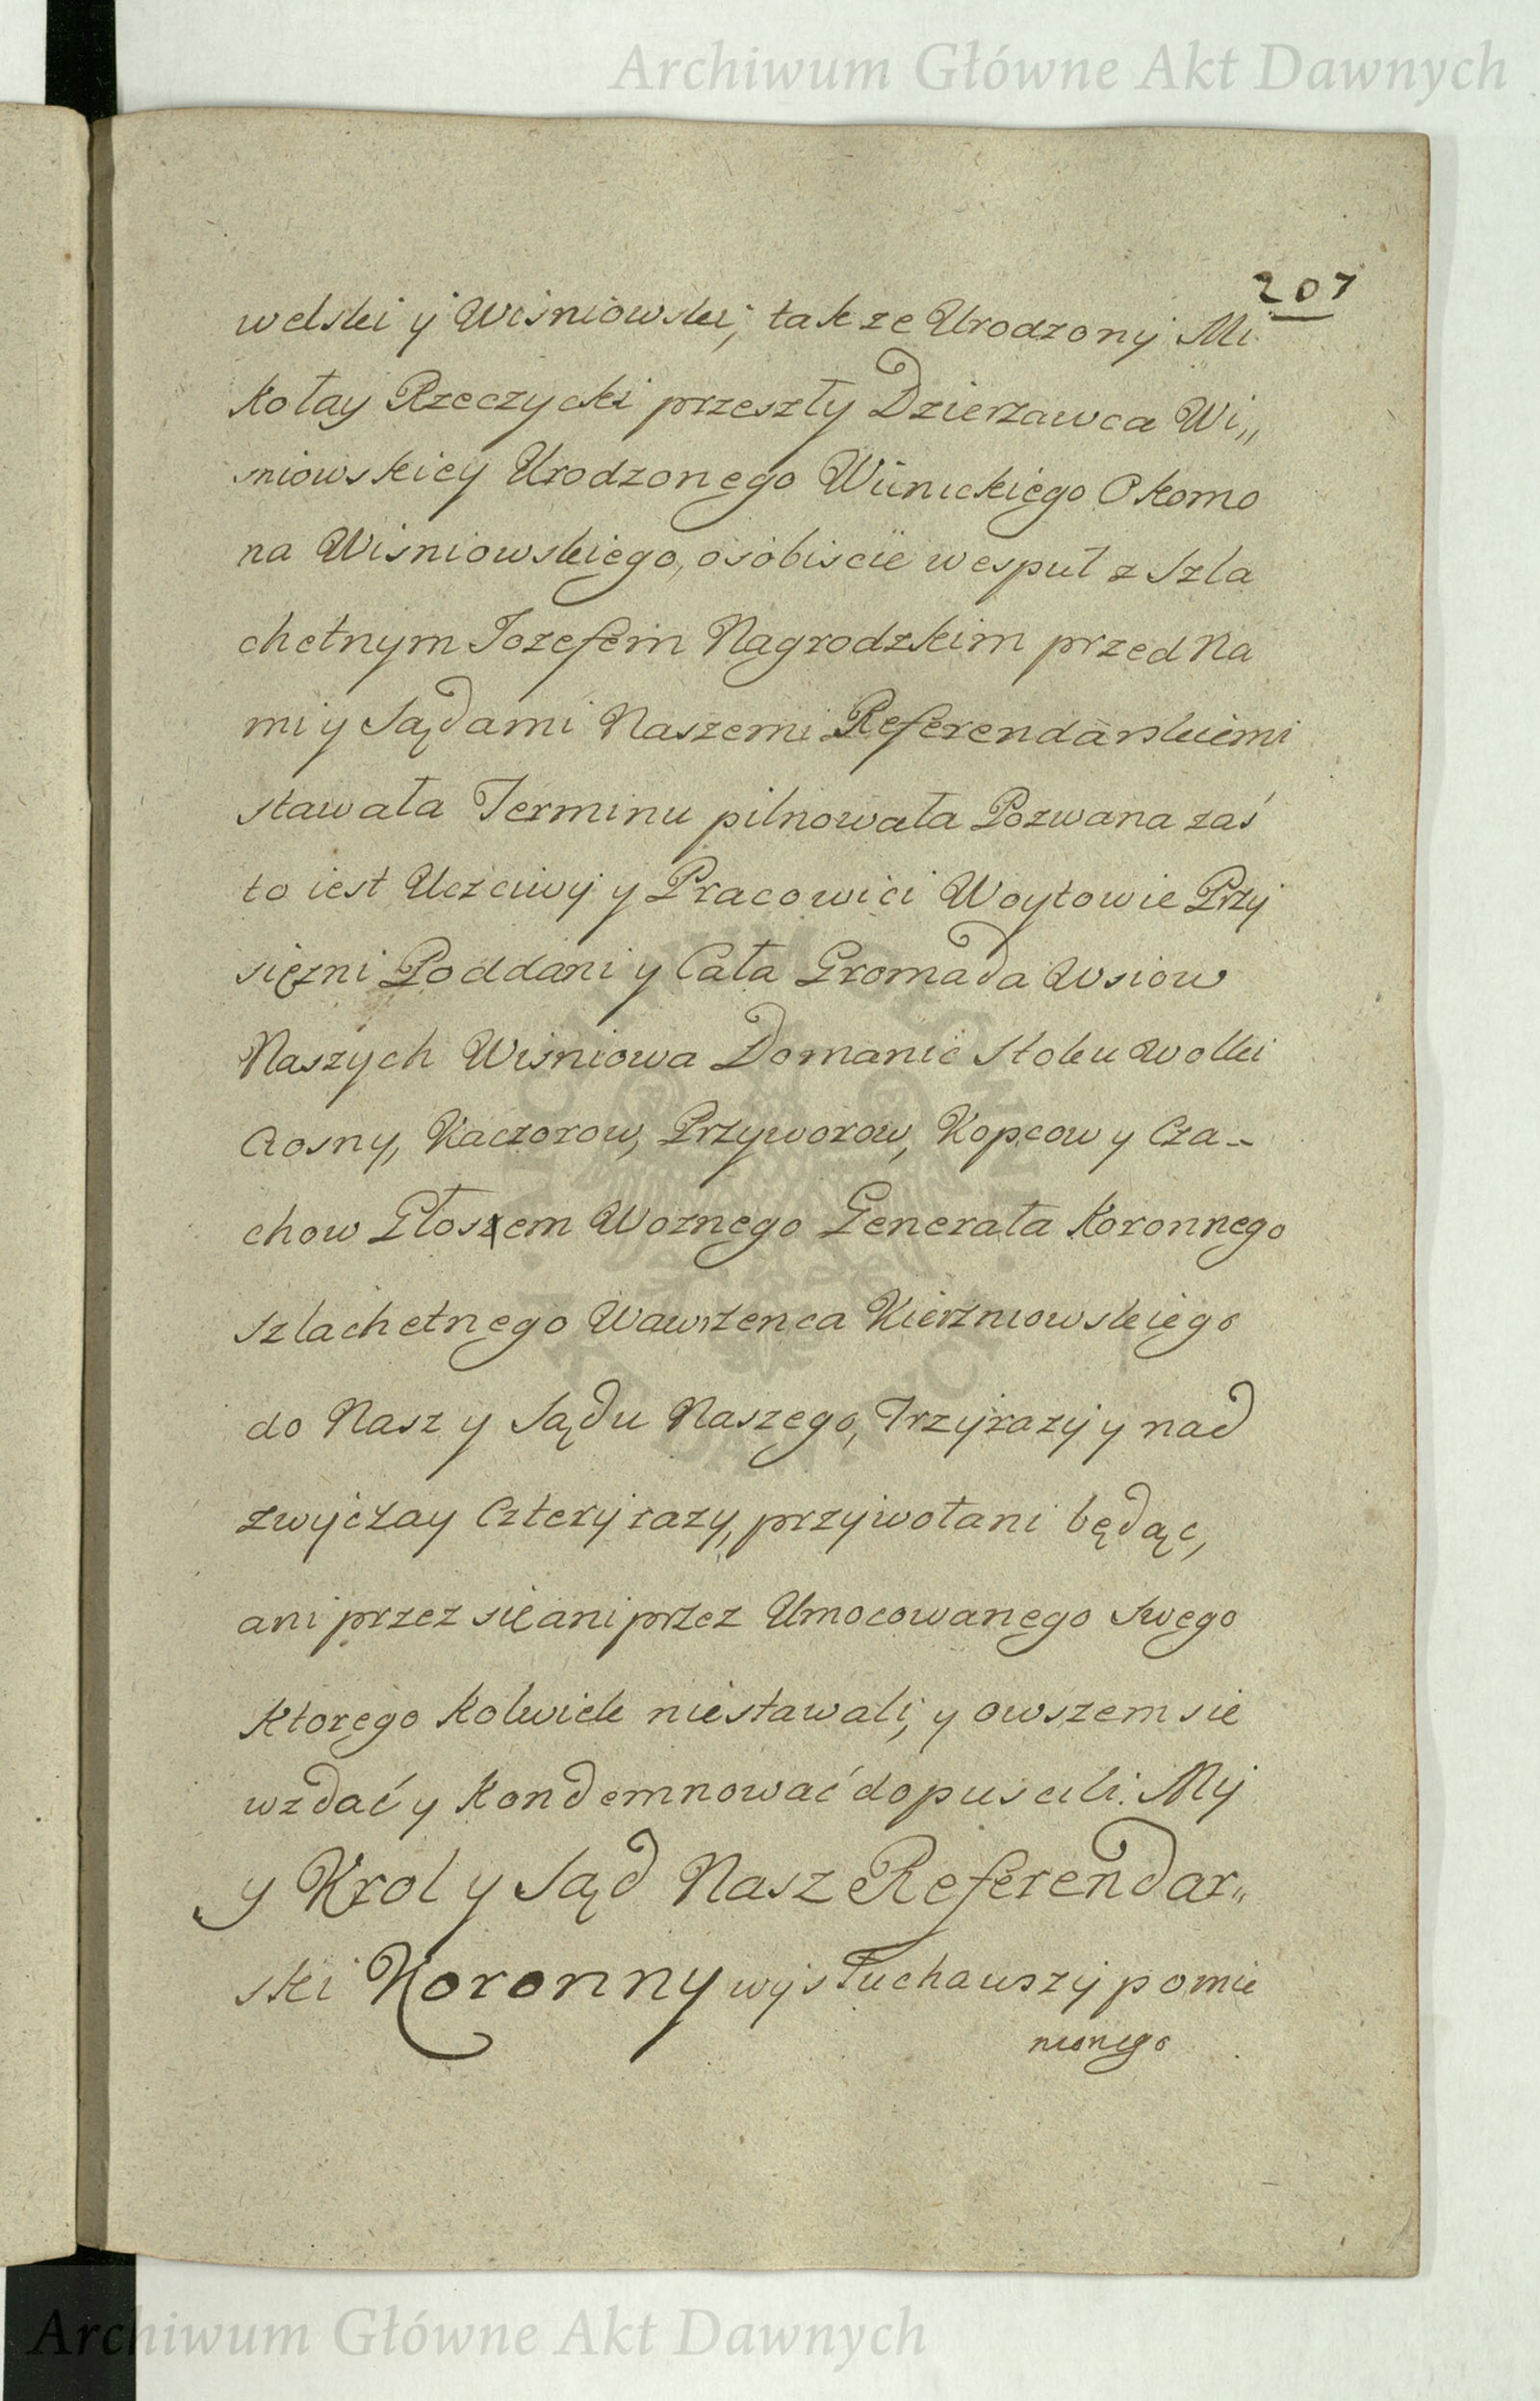 Archiwum Główne Akt Dawnych
207
welski y Wisniowski, takze Urodzony Mi
kołay Rzeczycki przeszły Dzierzawca Wi„
sniowskiey Urodzonego Wiinickiego Okomo
na Wisniowskiego, osobiscie wespuł z Szla
chetnym Jozefem Nagrodzkim przed Na
mi y Sądami Naszemi Referendarskiemi
stawała Terminu pilnowała Pozwana zaś
to iest Uczciwy y Pracowici Woytowie Przy
sięzni Poddani y Cała Gromada Wsiow
Naszych Wisniowa Domanic Stoku Wolki
Czosny, Kaczorow, Przyworow, Kopcow y Cza-
chow Głosem Woznego Generała Koronnego
szlachetnego Wawrzenca Kierzniowskiego
do Nasz y Sądu Naszego, Trzy razy y nad
zwyczay Cztery razy, przywołani będąc,
ani przez się ani przez Umocowanego Swego
ktorego kolwiek niestawali, y owszem sie
wzdać y kondemnować dopuscili. My
y Krol y Sąd Nasz Referendar„
ski Koronny wysłuchawszy pomie
nionego
Archiwum Główne Akt Dawnych